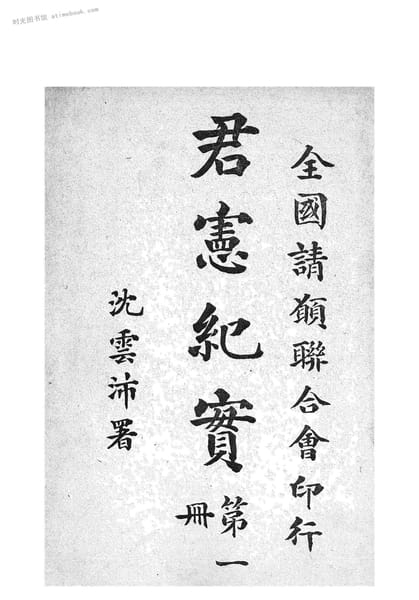 时光图书馆 atimebook.com
全國請願聯合會印行
君憲紀實
第一
冊
沈雲沛署